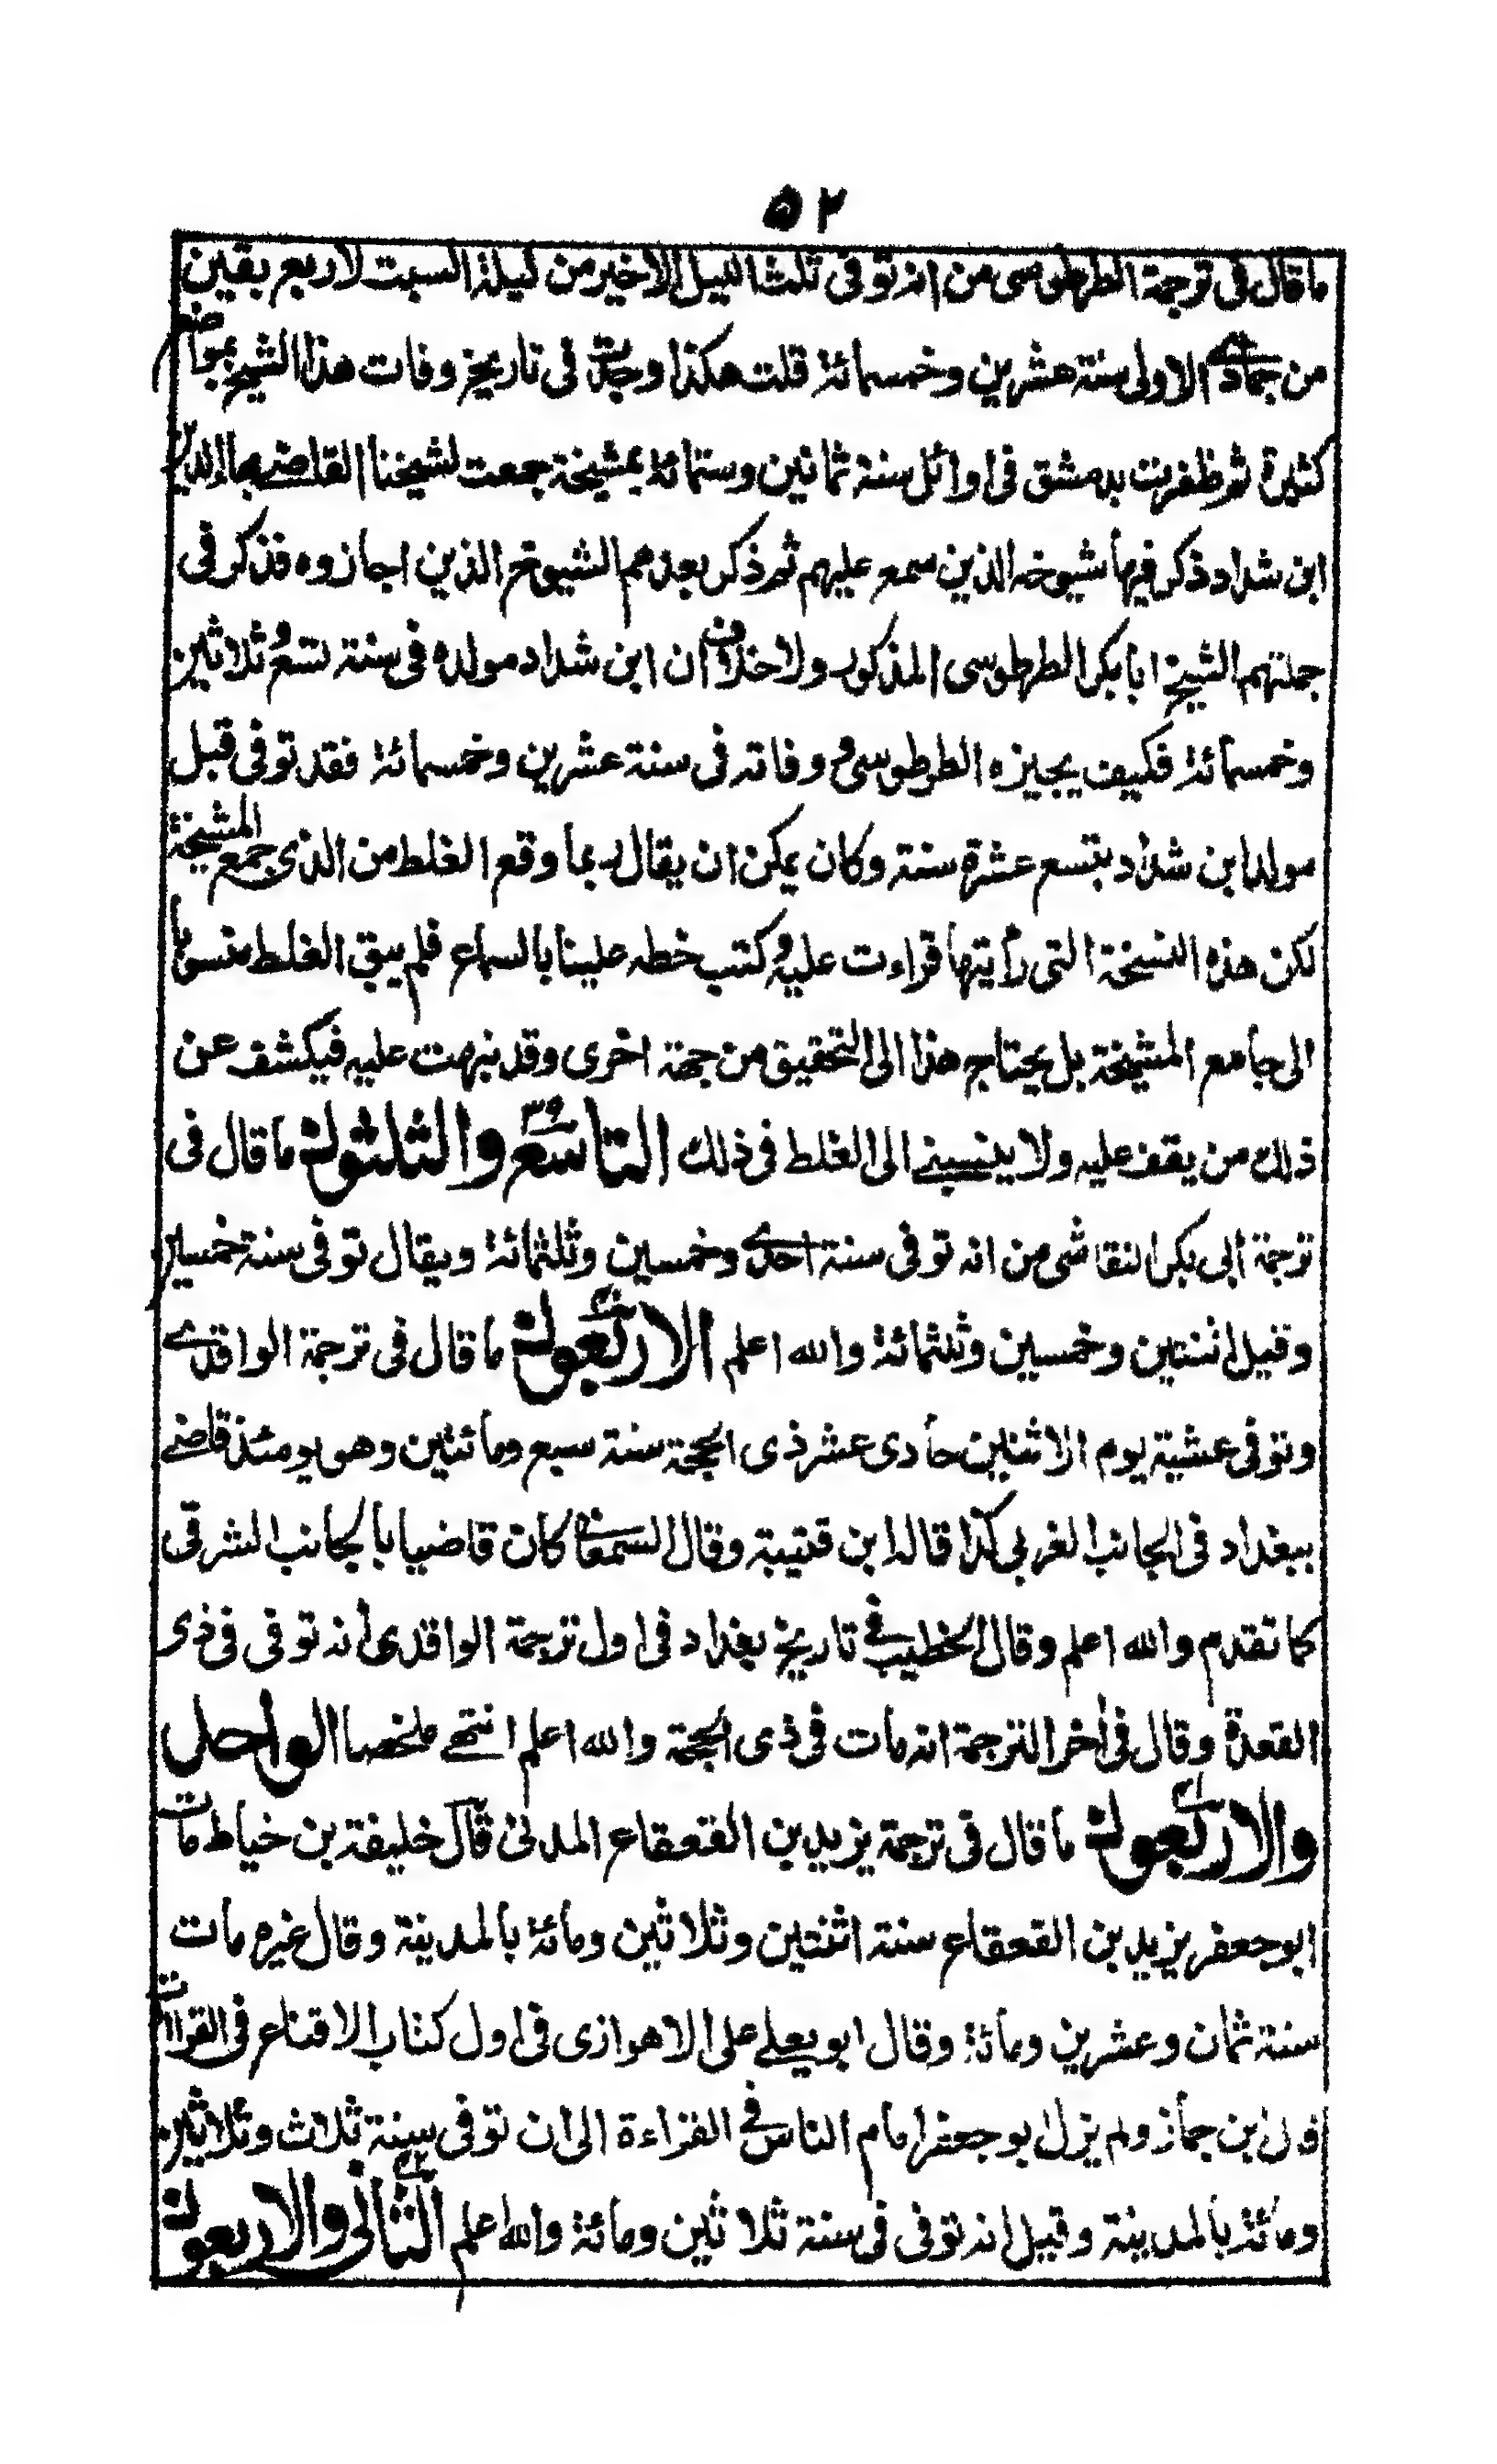 ٥٢
ما قال فى ترجمة الطرطوسى من انه توفى ثلث الليل الاخير من ليلة السبت لاربع بقين
من جمادى الاولى سنة عشرين وخمسمائة قلت هكذا وجدت فى تاريخ وفات هذا الشيخ بمواضع
كثيرة ثم ظفرت بدمشق فى اوائل سنة ثمانين وستمائة بمشيخة جمعت لشيخنا القاضى بهاء الدين
ابن شداد ذكر فيها شيوخه الذين سمع عليهم ثم ذكر بعدهم الشيوخ الذين اجازوه فذكر فى
جملتهم الشيخ ابا بكر الطرطوسى المذكور ولا خلاف ان ابن شداد مولده فى سنة تسع وثلاثين
وخمسمائة فكيف يجيزه الطرطوسى ووفاته فى سنة عشرين وخمسمائة فقد توفى قبل
مولد ابن شداد بتسع عشرة سنة وكان يمكن ان يقال ربما وقع الغلط من الذى جمع المشيخة
لكن هذه النسخة التى رأيتها قراءت عليه وكتب خطه علينا بالسماع فلم يبق الغلط منسوبا
الى جامع المشيخة بل يحتاج هذا الى التحقيق من جهة اخرى وقد نبهت عليه فيكشف عن
ذلك من يقف عليه ولا ينسبنى الى الغلط فى ذلك التاسع والثلثون ٣٩ ما قال فى
ترجمة ابى بكر النقاش من انه توفى سنة احدى وخمسين وثلثمائة ويقال توفى سنة خمسين
وقيل اثنتين وخمسين وثلثمائة والله اعلم الاربعون ٤٠ ما قال فى ترجمة الواقدى
وتوفى عشية يوم الاثنين حادى عشر ذى الحجة سنة سبع ومائتين وهو يومئذ قاضى
ببغداد فى الجانب الغربى كذا قاله ابن قتيبة وقال السمعانى كان قاضيا بالجانب الشرقى
كما تقدم والله اعلم وقال الخطيب فى تاريخ بغداد فى اول ترجمة الواقدى انه توفى فى ذى
القعدة وقال فى اخر الترجمة انه مات فى ذى الحجة والله اعلم انتهى ملخصا الواحد
والاربعون ٤١ ما قال فى ترجمة يزيد بن القعقاع المدنى قال خليفة بن خياط مات
ابو جعفر يزيد بن القعقاع سنة اثنتين وثلاثين ومائة بالمدينة وقال غيره مات
سنة ثمان وعشرين ومائة وقال ابو يعلى على الاهوازى فى اول كتاب الاقناع فى القراات
قال ابن جماز ولم يزل ابو جعفر امام الناس فى القراءة الى ان توفى سنة ثلاث وثلاثين
ومائة بالمدينة وقيل انه توفى فى سنة ثلاثين ومائة والله اعلم الثانى والاربعون ٤٢